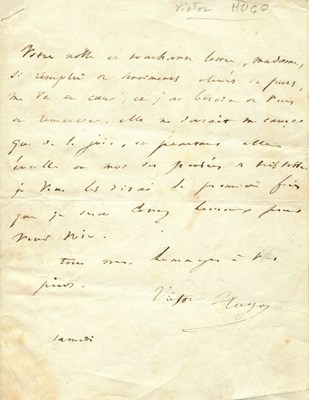 Victor HUGO
Votre noble et touchante lettre, madame,
si remplie de sentiments élevés et purs,
me va au cœur, et j'ai besoin de vous
en remercier. elle ne devrait me causer
que de la joie, et pourtant elle
éveille en moi des pensées de tristesse.
je vous les dirai la première fois
que je serai assez heureux pour
vous voir.
tous mes hommages à vos
pieds.
Victor Hugo
samedi